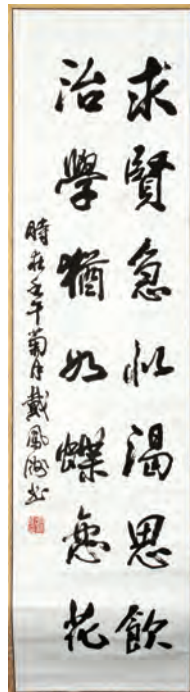 求賢急似渴思飲
治學猶如蝶恋花
時在壬午菊月戴鳳